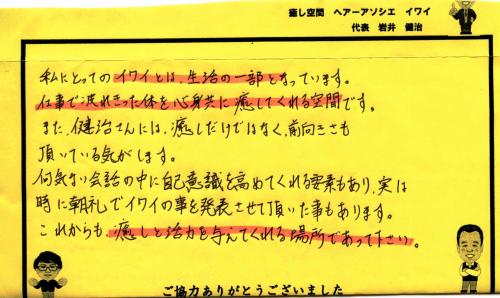 癒し空間 ヘアーアソシエ イワイ
代表 岩井 健治
私にとってのイワイとは、生活の一部となっています。
仕事で疲れきった体を心身共に癒してくれる空間です。
また、健治さんには、癒しだけではなく、前向きさも
頂いている気がします。
何気ない会話の中に自己意識を高めてくれる要素もあり、実は
時に朝礼でイワイの事を発表させて頂いた事もあります。
これからも、癒しと活力を与えてくれる場所であって下さい。
ご協力ありがとうございました